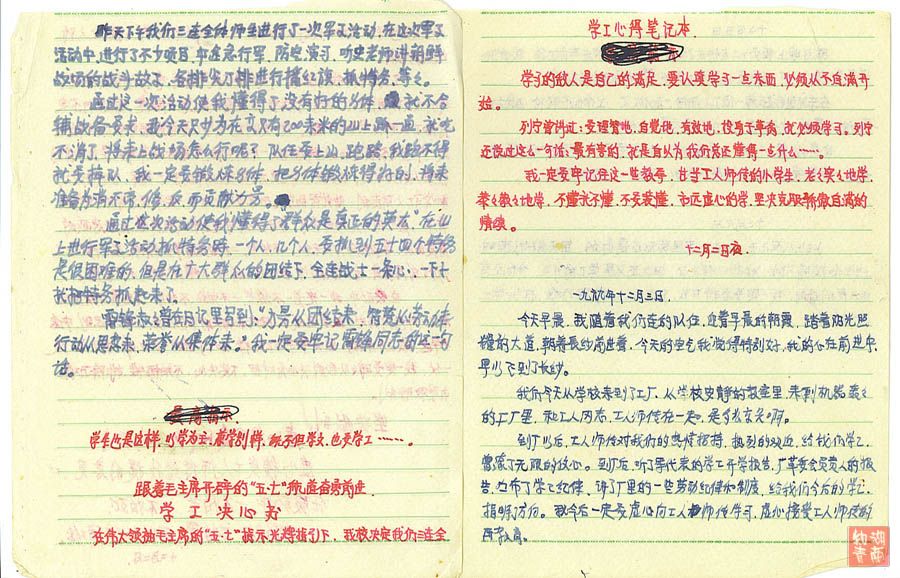 昨天下午我们三连全体师生进行了一次军事活动,在这次军事
活动中,进行了不少项目,有急行军,防空演习,听史老师讲朝鲜
战场的战斗故事,各排
通过这一次活动使我懂得了没有好的身体,就不合
辅战备要求,我今天只少为在又只有200来米的山上跑一通,就吃
不消了,将来上战场怎么行呢?队伍要上山,跑路,我跑不得
就要掉队,我一定要锻炼身体,把身体锻炼得好好的,将来
准备为消灭帝、修、反而贡献力量。
通过这次活动使我懂得了"群众是真正的英雄"在山
上进行军事活动抓特务时,一个人、几个人要抓到五十四个特务
是很困难的,但是在广大群众的团结下,全连战士一条心,一下午
就把特务抓起来了。
雷锋叔叔曾在日记里写到:"力量从团结来,智慧从劳动来,
行动从思想来,荣誉从集体来。"我一定要牢记雷锋同志的这一句
话。
学生也是这样,以学为主,兼学别样,既不但学文,也要学工……。
跟着毛主席开辟的"五·七"轨道奋勇前进
学工决心书
在伟大领袖毛主席的"五·七"指示光辉指引下,我校决定我们三连全
学工心得笔记本
学习的敌人是自己的满足,要认真学习一点东西,必须从不自满开
始。
列宁曾讲过:要理智地,自觉地,有效地,投身于革命,就必须学习。列宁
还说过这么一句话:最有害的,就是自认为我们总还懂得一些什么……。
我一定要牢记住这一些教导,甘当工人师傅的小学生,老老实实地学,
勤勤恳恳地学,不懂就不懂,不要装懂,
情绪。
十二月二日夜
一九六九年十二月三日.
今天早晨,我随着我们连的队伍,迎着早晨的朝霞,踏着阳光照
耀的大道,朝着长纱前进着,今天的空气我觉得特别好,我的心在前进中
早以飞到了长纱。
我们今天从学校来到了工厂,从学校安静的教室里,来到机器轰轰
的工厂里,和工人同志,工人师傅在一起,是多么高兴啊。
到厂以后,工人师傅对我们的热情招待,热烈的欢迎,给我们学工
增添了无限的信心。到厂后,听了军代表的学工开学报告,厂革委会负责人的报
告,公布了学工纪律,讲了厂里的一些劳动纪律和制度,给我们今后的学工
指明方向。我今后一定要虚心向工人师傅学习,虚心接受工人师傅的
再教育。
湖南
知青